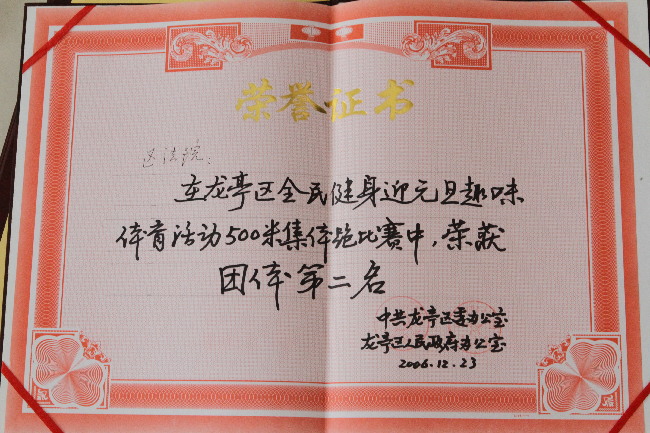 荣誉证书
区法院：
在龙亭区全民健身迎元旦趣味
体育活动500米集体跑比赛中，荣获
团体第二名
中共龙亭区委办公室
龙亭区人民政府办公室
2006.12.23